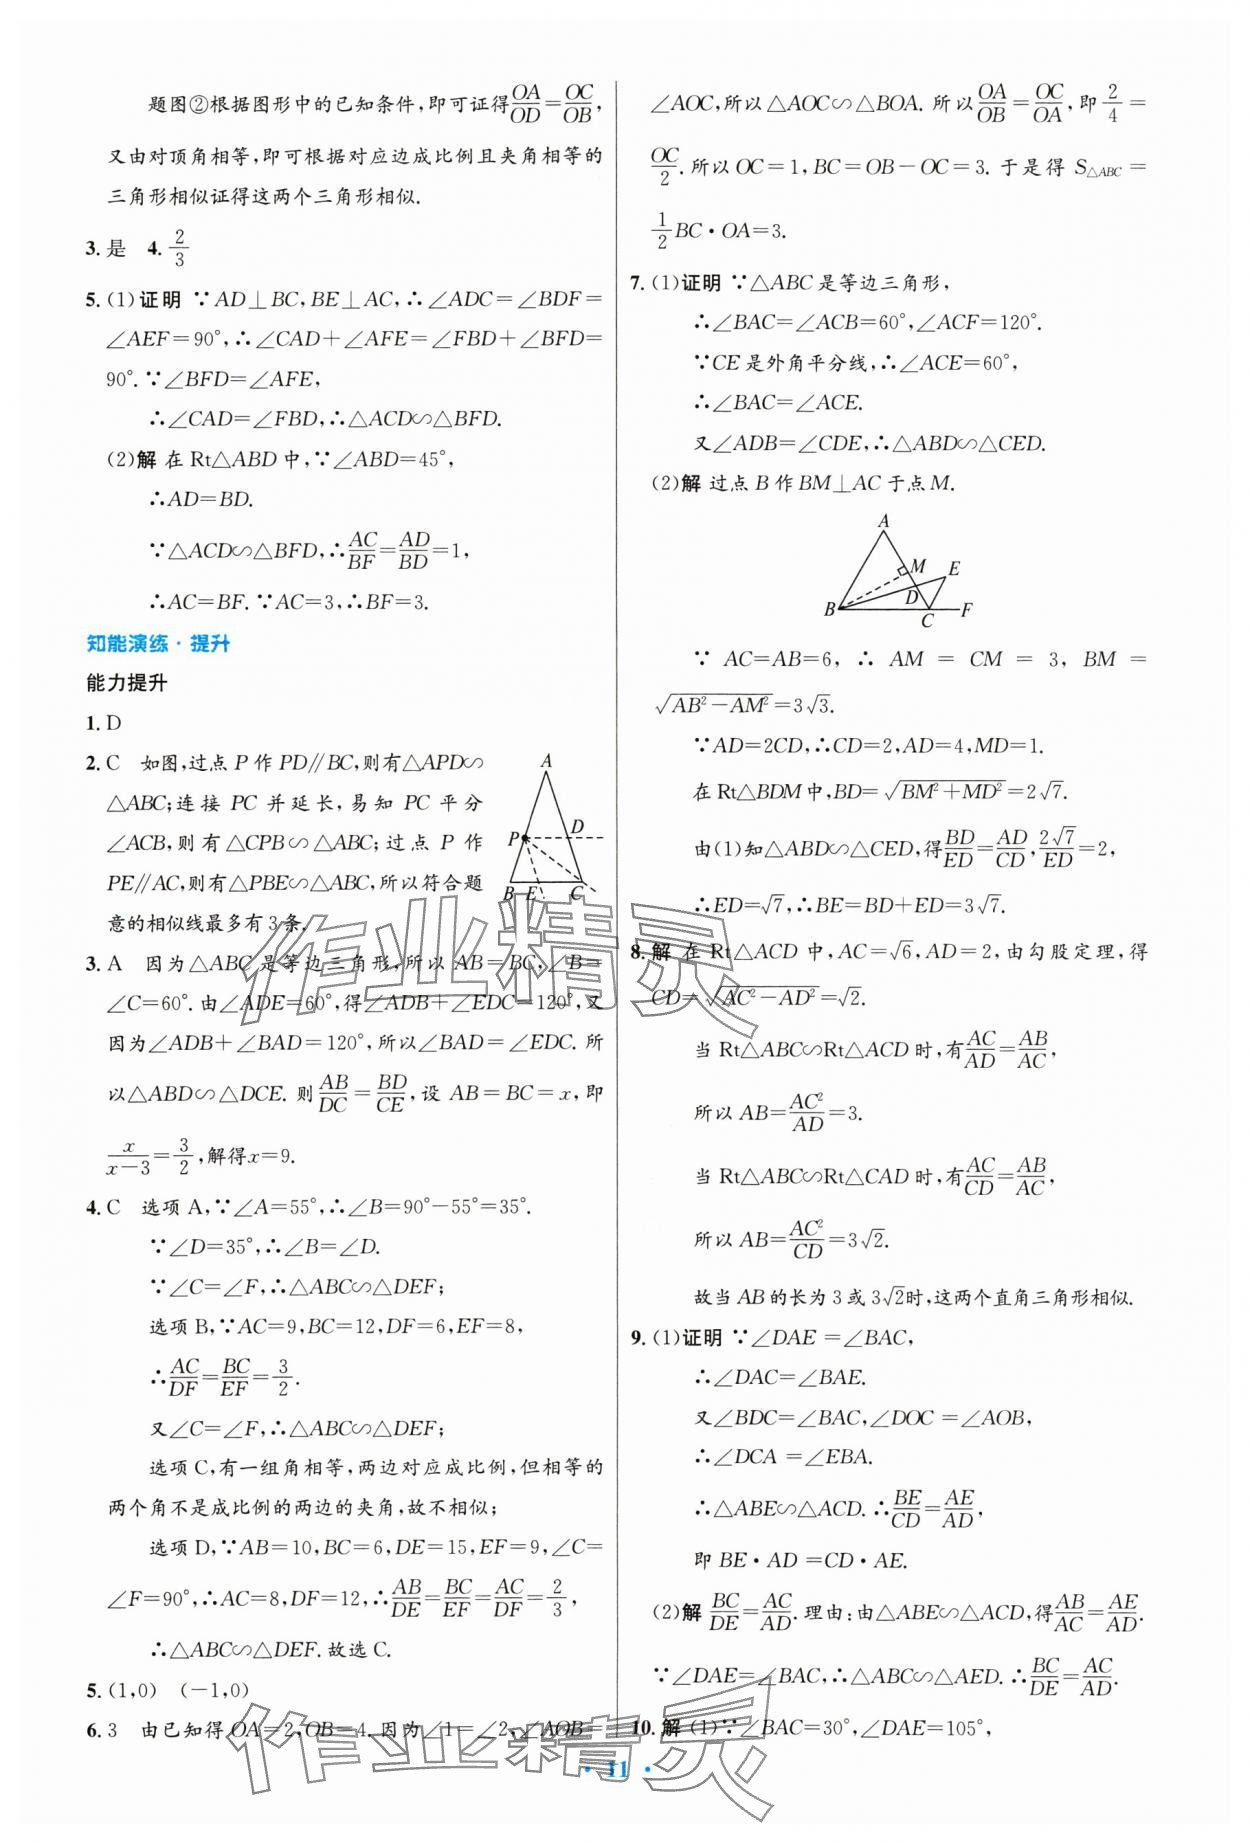 题图②根据图形中的已知条件,即可证得OA/OD=OC/OB,
又由对顶角相等,即可根据对应边成比例且夹角相等的
三角形相似证得这两个三角形相似.
3.是 4. 2/3
5.(1)证明 ∵AD⊥BC,BE⊥AC,∴∠ADC=∠BDF=
∠AEF=90°,∴∠CAD+∠AFE=∠FBD+∠BFD=
90°.∵∠BFD=∠AFE,
∴∠CAD=∠FBD,∴△ACD∽△BFD.
(2)解 在 Rt△ABD 中,∵∠ABD=45°,
∴AD=BD.
∵△ACD∽△BFD,∴AC/BF=AD/BD=1,
∴AC=BF.∵AC=3,∴BF=3.
知能演练·提升
能力提升
1.D
2.C 如图,过点 P 作 PD∥BC,则有△APD∽
△ABC;连接 PC 并延长,易知 PC 平分
∠ACB,则有△CPB∽△ABC;过点 P 作
PE∥AC,则有△PBE∽△ABC,所以符合题
意的相似线最多有3条.
A
P
D
B
E
C
3.A 因为△ABC 是等边三角形,所以 AB=BC,∠B=
∠C=60°.由∠ADE=60°,得∠ADB+∠EDC=120°,又
因为∠ADB+∠BAD=120°,所以∠BAD=∠EDC.所
以△ABD∽△DCE.则AB/DC=BD/CE,设 AB=BC=x,即
x/(x-3)=3/2,解得x=9.
4.C 选项 A,∵∠A=55°,∴∠B=90°-55°=35°.
∵∠D=35°,∴∠B=∠D.
∵∠C=∠F,∴△ABC∽△DEF;
选项 B,∵AC=9,BC=12,DF=6,EF=8,
∴AC/DF=BC/EF=3/2.
又∠C=∠F,∴△ABC∽△DEF;
选项 C,有一组角相等,两边对应成比例,但相等的
两个角不是成比例的两边的夹角,故不相似;
选项 D,∵AB=10,BC=6,DE=15,EF=9,∠C=
∠F=90°,∴AC=8,DF=12,∴AB/DE=BC/EF=AC/DF=2/3,
∴△ABC∽△DEF.故选 C.
5.(1,0) (-1,0)
6.3 由已知得 OA=2,OB=4.因为∠1=∠2,∠AOB=
∠AOC,所以△AOC∽△BOA.所以OA/OB=OC/OA,即2/4=
OC/2.所以 OC=1,BC=OB-OC=3.于是得 S△ABC=
1/2 BC·OA=3.
7.(1)证明 ∵△ABC 是等边三角形,
∴∠BAC=∠ACB=60°,∠ACF=120°.
∵CE是外角平分线,∴∠ACE=60°,
∴∠BAC=∠ACE.
又∠ADB=∠CDE,∴△ABD∽△CED.
(2)解 过点 B 作 BM⊥AC 于点 M.
A
M
E
D
B
C
F
∵ AC=AB=6,∴ AM = CM = 3,BM =
√(AB²-AM²)=3√3.
∵AD=2CD,∴CD=2,AD=4,MD=1.
在 Rt△BDM 中,BD=√(BM²+MD²)=2√7.
由(1)知△ABD∽△CED,得BD/ED=AD/CD,2√7/ED=2,
∴ED=√7,∴BE=BD+ED=3√7.
8.解 在 Rt△ACD 中,AC=√6,AD=2,由勾股定理,得
CD=√(AC²-AD²)=√2.
当 Rt△ABC∽Rt△ACD 时,有AC/AD=AB/AC,
所以 AB=AC²/AD=3.
当 Rt△ABC∽Rt△CAD 时,有AC/CD=AB/AC,
所以 AB=AC²/CD=3√2.
故当 AB 的长为 3 或 3√2时,这两个直角三角形相似.
9.(1)证明 ∵∠DAE=∠BAC,
∴∠DAC=∠BAE.
又∠BDC=∠BAC,∠DOC=∠AOB,
∴∠DCA=∠EBA.
∴△ABE∽△ACD.∴BE/CD=AE/AD,
即 BE·AD=CD·AE.
(2)解 BC/DE=AC/AD.理由:由△ABE∽△ACD,得AB/AC=AE/AD.
∵∠DAE=∠BAC,∴△ABC∽△AED.∴BC/DE=AC/AD.
10.解 (1)∵∠BAC=30°,∠DAE=105°,
·11·
作业精灵
作业精灵